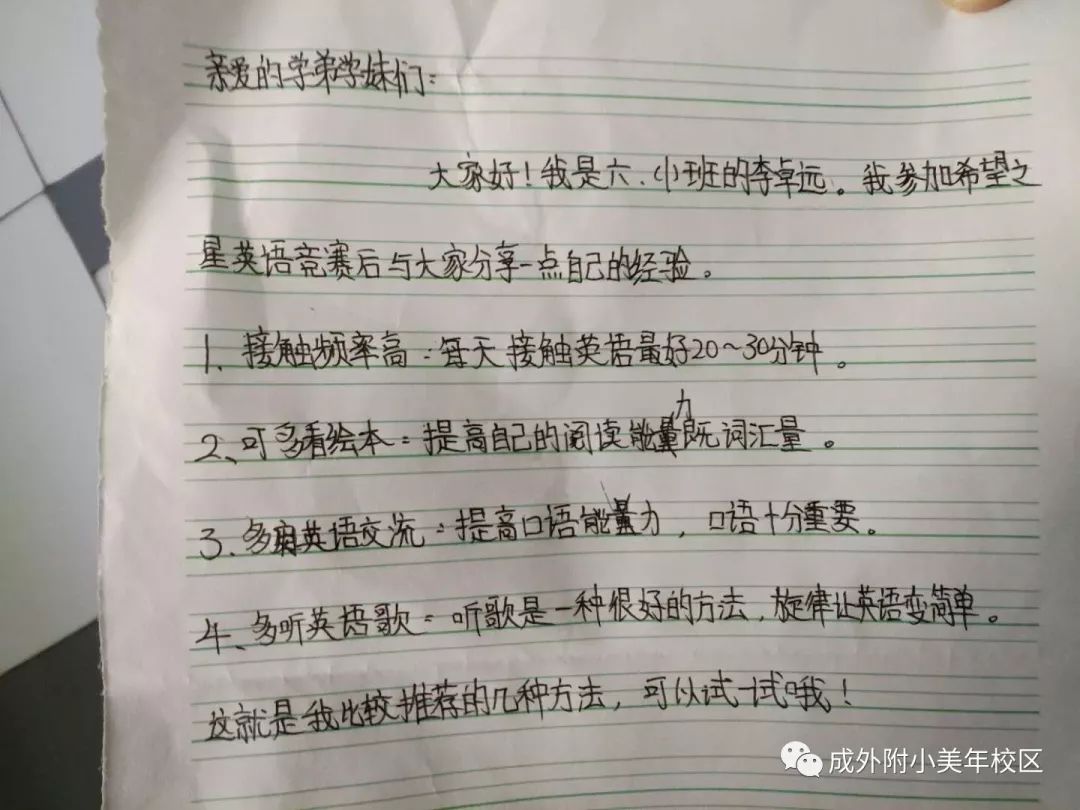 亲爱的学弟学妹们：
大家好！我是六.小班的李卓远。我参加希望之
星英语竞赛后与大家分享一点自己的经验。
1、接触频率高：每天接触英语最好20~30分钟。
2、可多看绘本：提高自己的阅读能力既词汇量。
3、多用英语交流：提高口语能力，口语十分重要。
4、多听英语歌：听歌是一种很好的方法，旋律让英语变简单。
这就是我比较推荐的几种方法，可以试一试哦！
成外附小美年校区